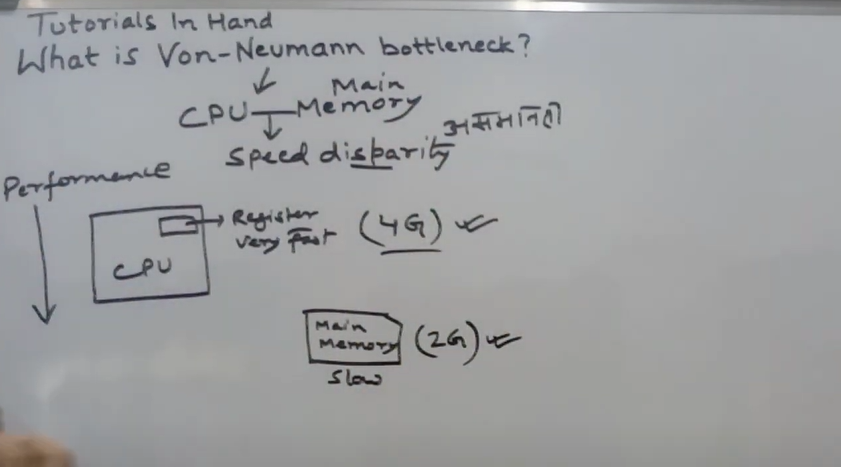 Tutorials In Hand
What is Von-Neumann bottleneck?
Main
CPU — Memory
Speed disparity असमानता
Performance
Register (4G)
very Fast
CPU
Main
Memory (2G)
Slow